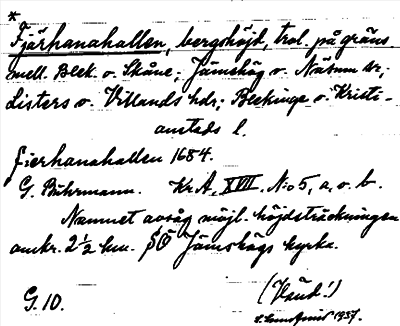 *
Fjärhanahallen, bergshöjd, trol. på gräns
mell. Blek. o. Skåne; Jämshög o. Näsum sn,
Listers o. Villands hdr; Blekinge o. Kristi-
anstads l.
fierhanahallen 1684.
G. Buhrmann. Kr. A. XVII. No 5, a. o. b.
Namnet avsåg möjl. höjdsträckningen
omkr. 2½ km. SÖ Jämshögs kyrka.
G. 10. (Vänd!)
1957.